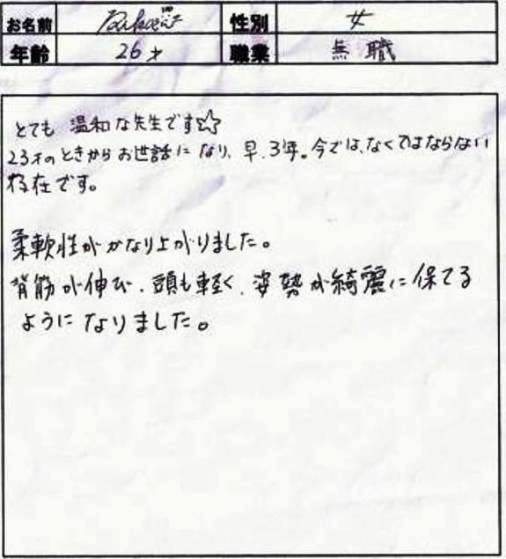 お名前 性別 女
年齢 26才 職業 無職
とても 温和な先生です☆☆
23才のときからお世話になり、早、3年。今では、なくてはならない
存在です。
柔軟性がかなり上がりました。
背筋が伸び、頭も軽く、姿勢が綺麗に保てる
ようになりました。